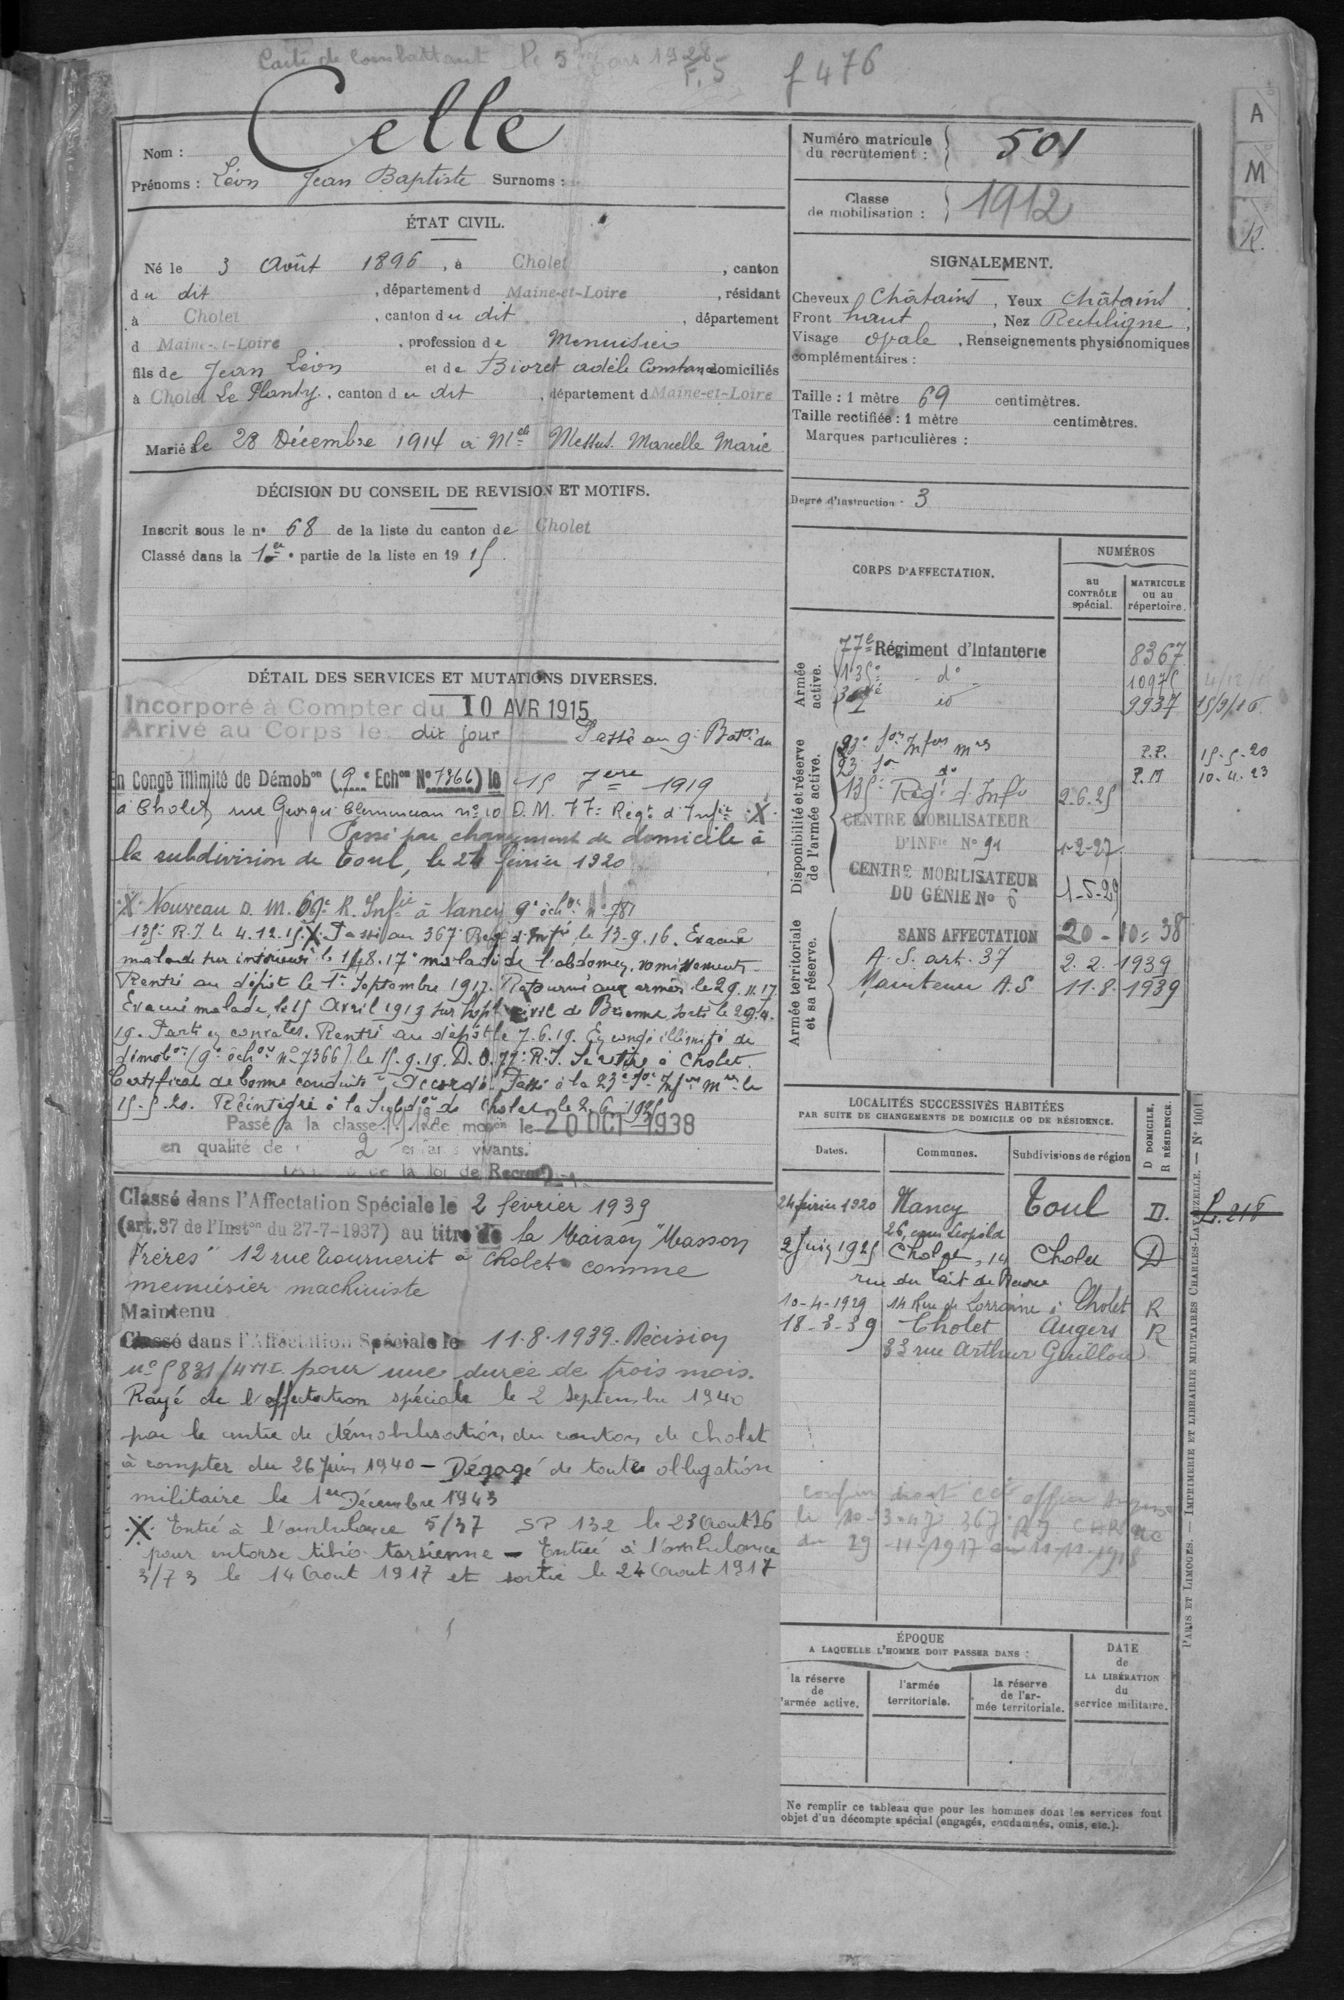 Carte de combattant le 5 Mars 1928
F. 5
f 476
Nom : Celle
Prénoms : Léon Jean Baptiste Surnoms :
ÉTAT CIVIL.
Né le 3 Août 1896, à Cholet, canton
du dit, département d Maine-et-Loire, résidant
à Cholet, canton du dit, département
d Maine-et-Loire, profession de Menuisier
fils de Jean Léon et de Bioret adèle Constance domiciliés
à Cholet Le Planty, canton du dit, département d Maine-et-Loire
Marié le 28 Décembre 1914 à Melle Messus Marcelle Marie
DÉCISION DU CONSEIL DE REVISION ET MOTIFS.
Inscrit sous le n° 68 de la liste du canton de Cholet
Classé dans la 1ere partie de la liste en 1915
DÉTAIL DES SERVICES ET MUTATIONS DIVERSES.
Incorporé à Compter du 10 AVR 1915
Arrivé au Corps le dit jour Passé au 9e Baton du
en Congé illimité de Démobon (9e Echon N° 7366) le 15 7bre 1919
à Cholet, rue Georges Clemenceau n° 10 D. M. 77e Régt d'Infie .X.
Passé par changement de domicile à
la subdivision de Toul, le 24 février 1920
.X. Nouveau D. M. 69e R. Infie à Nancy 9e échon n° 781
135e R.I. le 4.12.15 .X. Passé au 367e Reg. d'Infie le 13.9.16. Evacué
malade sur intérieur le 14.8.17 maladie de l'abdomen, vomissements
Rentré au dépôt le 1er Septembre 1917. Retourné aux armées le 29.11.17
Evacué malade, le 15 Avril 1919 sur hôpl civil de Brienne sorti le 29.4.
19. Parti en convales. Rentré au dépôt le 7.6.19. En congé illimité de
démobon (9e échon n° 7366) le 15.9.19. D. O. 77e R.I. Se retire à Cholet.
Certificat de bonne conduite "Accordé". Passé à la 23e Son Infers Mres le
15.5.20. Réintégré à la Subdon de Cholet le 2.6.1925
Passé à la classe 1912 de mobon le 20 OCT 1938
en qualité de 2 enfants vivants.
de la loi de Recrut
Classé dans l'Affectation Spéciale le 2 février 1939
(art. 37 de l'Inston du 27-7-1937) au titre de la Maison "Masson
Frères" 12 rue Tournerit à Cholet comme
menuisier machiniste
Maintenu
Classé dans l'Affectation Spéciale le 11.8.1939. Décision
n° 5831/4ME pour une durée de trois mois.
Rayé de l'affectation spéciale le 2 Septembre 1940
par le centre de démobilisation du canton de Cholet
à compter du 26 Juin 1940 – Dégagé de toutes obligation
militaire le 1er Décembre 1943
.X. Entré à l'ambulance 5/37 SP 132 le 23 Aout 16
pour entorse tibio tarsienne – Entré à l'ambulance
3/73 le 14 Aout 1917 et sortie le 24 Aout 1917
Numéro matricule du recrutement : 501
Classe de mobilisation : 1912
SIGNALEMENT.
Cheveux Châtains, Yeux châtains
Front haut, Nez Rectiligne,
Visage ovale, Renseignements physionomiques
complémentaires :
Taille : 1 mètre 69 centimètres.
Taille rectifiée : 1 mètre centimètres.
Marques particulières :
Degré d'instruction : 3
CORPS D'AFFECTATION.
NUMÉROS
au CONTRÔLE spécial.
MATRICULE ou au répertoire.
Armée active.
77e Régiment d'Infanterie 8367
135e d° 10975 4/12/15
367e id 9937 15/9/16
Disponibilité et réserve de l'armée active.
23e Son Infers Mres P.P. 15-5-20
23 Son d° P.M 10.4.23
135e Régt d'Infie 2.6.25
CENTRE MOBILISATEUR
D'INFie N° 91 1-2-27
CENTRE MOBILISATEUR
DU GÉNIE N° 6 1-5-29
Armée territoriale et sa réserve.
SANS AFFECTATION 20-10-38
A. S. art. 37 2.2.1939
Maintenu A.S 11.8.1939
LOCALITÉS SUCCESSIVES HABITÉES
PAR SUITE DE CHANGEMENTS DE DOMICILE OU DE RÉSIDENCE.
D DOMICILE, R RÉSIDENCE.
Dates. Communes. Subdivisions de région
24 février 1920 Nancy Toul D. L. 218
26, cours Leopold
2 Juin 1925 Cholet, 14 Cholet D
rue du Lait de Beurre
10-4-1929 14 Rue de Lorraine à Cholet R
18-3-39 Cholet Angers R
33 rue Arthur Guillou
le 10-3-47 367e RI
du 29-11-1917 au 11-11-1918
ÉPOQUE
A LAQUELLE L'HOMME DOIT PASSER DANS :
la réserve de l'armée active.
l'armée territoriale.
la réserve de l'armée territoriale.
DATE de LA LIBÉRATION du service militaire.
Ne remplir ce tableau que pour les hommes dont les services font
objet d'un décompte spécial (engagés, condamnés, omis, etc.).
PARIS ET LIMOGES. — IMPRIMERIE ET LIBRAIRIE MILITAIRES CHARLES-LAVAUZELLE. — N° 1001
A
M
R.